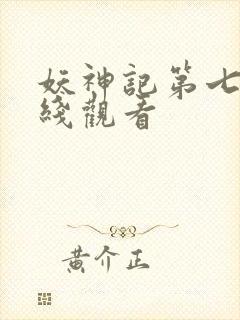 妖神記第七
綫觀看
黃介正